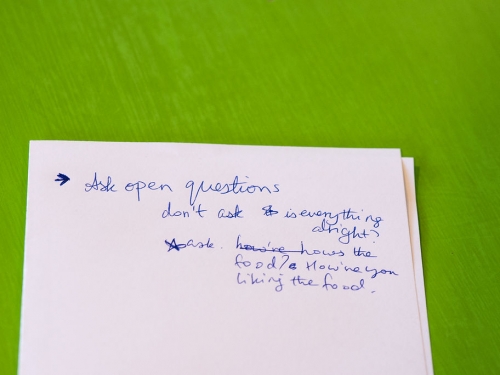 → Ask open questions
don't ask is everything
alright?
ask. how're hows the
food? How're you
liking the food.